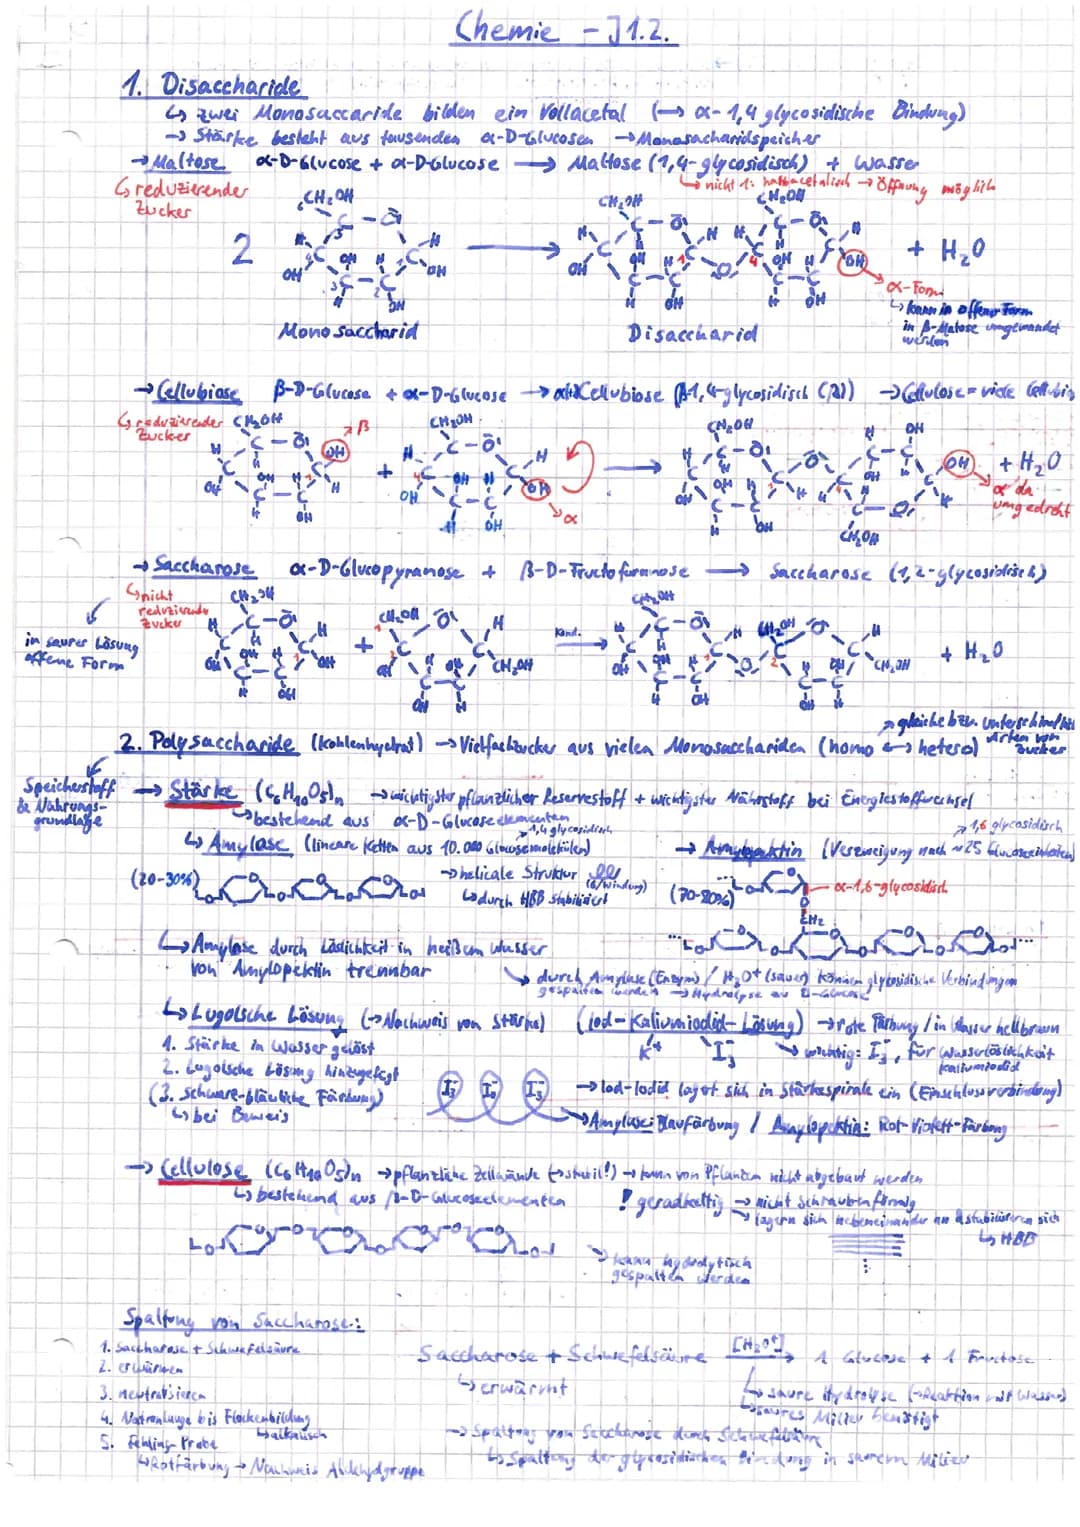 Chemie - J1.2.
1. Disaccharide
↳ zwei Monosaccaride bilden ein Vollacetal (→ α-1,4 glycosidische Bindung)
→ Stärke besteht aus tausenden α-D-Glucosen → Monosacharidspeicher
→ Maltose α-D-Glucose + α-D-Glucose → Maltose (1,4-glycosidisch) + Wasser
↳ reduzierender Zucker
↳ nicht 1: halbacetalisch → Öffnung möglich
2
+ H₂O
α-Form
↳ kann in offener Form
in β-Matose umgewandelt
werden
Monosaccharid
Disaccharid
→ Cellubiose β-D-Glucose + α-D-Glucose → Cellubiose (β-1,4-glycosidisch → Cellulose = viele
↳ reduzierender Zucker
β
+
α
+ H₂O
α da
umgedreht
→ Saccharose α-D-Glucopyranose + β-D-Fructofuranose → Saccharose (1,2-glycosidisch)
↳ nicht
reduzierende
Zucker
in saurer Lösung
offene Form
+
Kond.
+ H₂O
gleiche bzw.
Arten von
Zucker
2. Polysaccharide (Kohlenhydrat) → Vielfachzucker aus vielen Monosacchariden (homo ↔ hetero)
Speicherstoff
& Nahrungs-
grundlage
→ Stärke (C₆H₁₀O₅)n → wichtigster pflanzlicher Reservestoff + wichtigster Nährstoff bei Energiestoffwechsel
↳ bestehend aus α-D-Glucoseelementen
1,4 glycosidisch
↳ Amylose (lineare Ketten aus 10.000 Glucosemolekülen)
1,6 glycosidisch
→ Amylopektin (Verzweigung nach ~25 Glucoseeinheiten)
(20-30%)
→ helicale Struktur (6/Windung)
↳ durch HBB stabilisiert
(70-80%)
α-1,6-glycosidisch
↳ Amylose durch Löslichkeit in heißem Wasser
von Amylopektin trennbar
↳ durch Amylase (Enzym) / H₃O⁺ (sauer) können glycosidische Verbindungen
gespalten werden → Hydrolyse zu D-Glucose
↳ Lugolsche Lösung (→ Nachweis von Stärke) (Iod-Kaliumiodid-Lösung) → rote Färbung / in Wasser hellbraun
K⁺ I₃⁻
→ wichtig: I₃⁻, für Wasserlöslichkeit
Kaliumiodid
1. Stärke in Wasser gelöst
2. Lugolsche Lösung hinzugefügt
(3. Schwarz-bläuliche Färbung)
↳ bei Beweis
I₃⁻ I₃⁻ I₃⁻
→ Iod-Iodid lagert sich in Stärkespirale ein (Einschlussverbindung)
→ Amylose: Blaufärbung / Amylopektin: Rot-Violett-Färbung
→ Cellulose (C₆H₁₀O₅)n → pflanzliche Zellwände (→ stabil!) → kann von Pflanzen nicht abgebaut werden
↳ bestehend aus β-D-Glucoseelementen
! geradkettig → nicht schraubenförmig
→ lagern sich nebeneinander an & stabilisieren sich
↳ HBB
→ kann hydrolytisch
gespalten werden
Spaltung von Saccharose:
1. Saccharose + Schwefelsäure
2. erwärmen
3. neutralisieren
4. Natronlauge bis Flockenbildung
↳ alkalisch
5. Fehling-Probe
↳ Rotfärbung → Nachweis Aldehydgruppe
Saccharose + Schwefelsäure [H₃O⁺] → 1 Glucose + 1 Fructose
↳ erwärmt
↳ saure Hydrolyse (→ Reaktion mit Wasser)
↳ saures Milieu benötigt
→ Spaltung von Saccharose durch Schwefelsäure
↳ Spaltung der glycosidischen Bindung in saurem Milieu